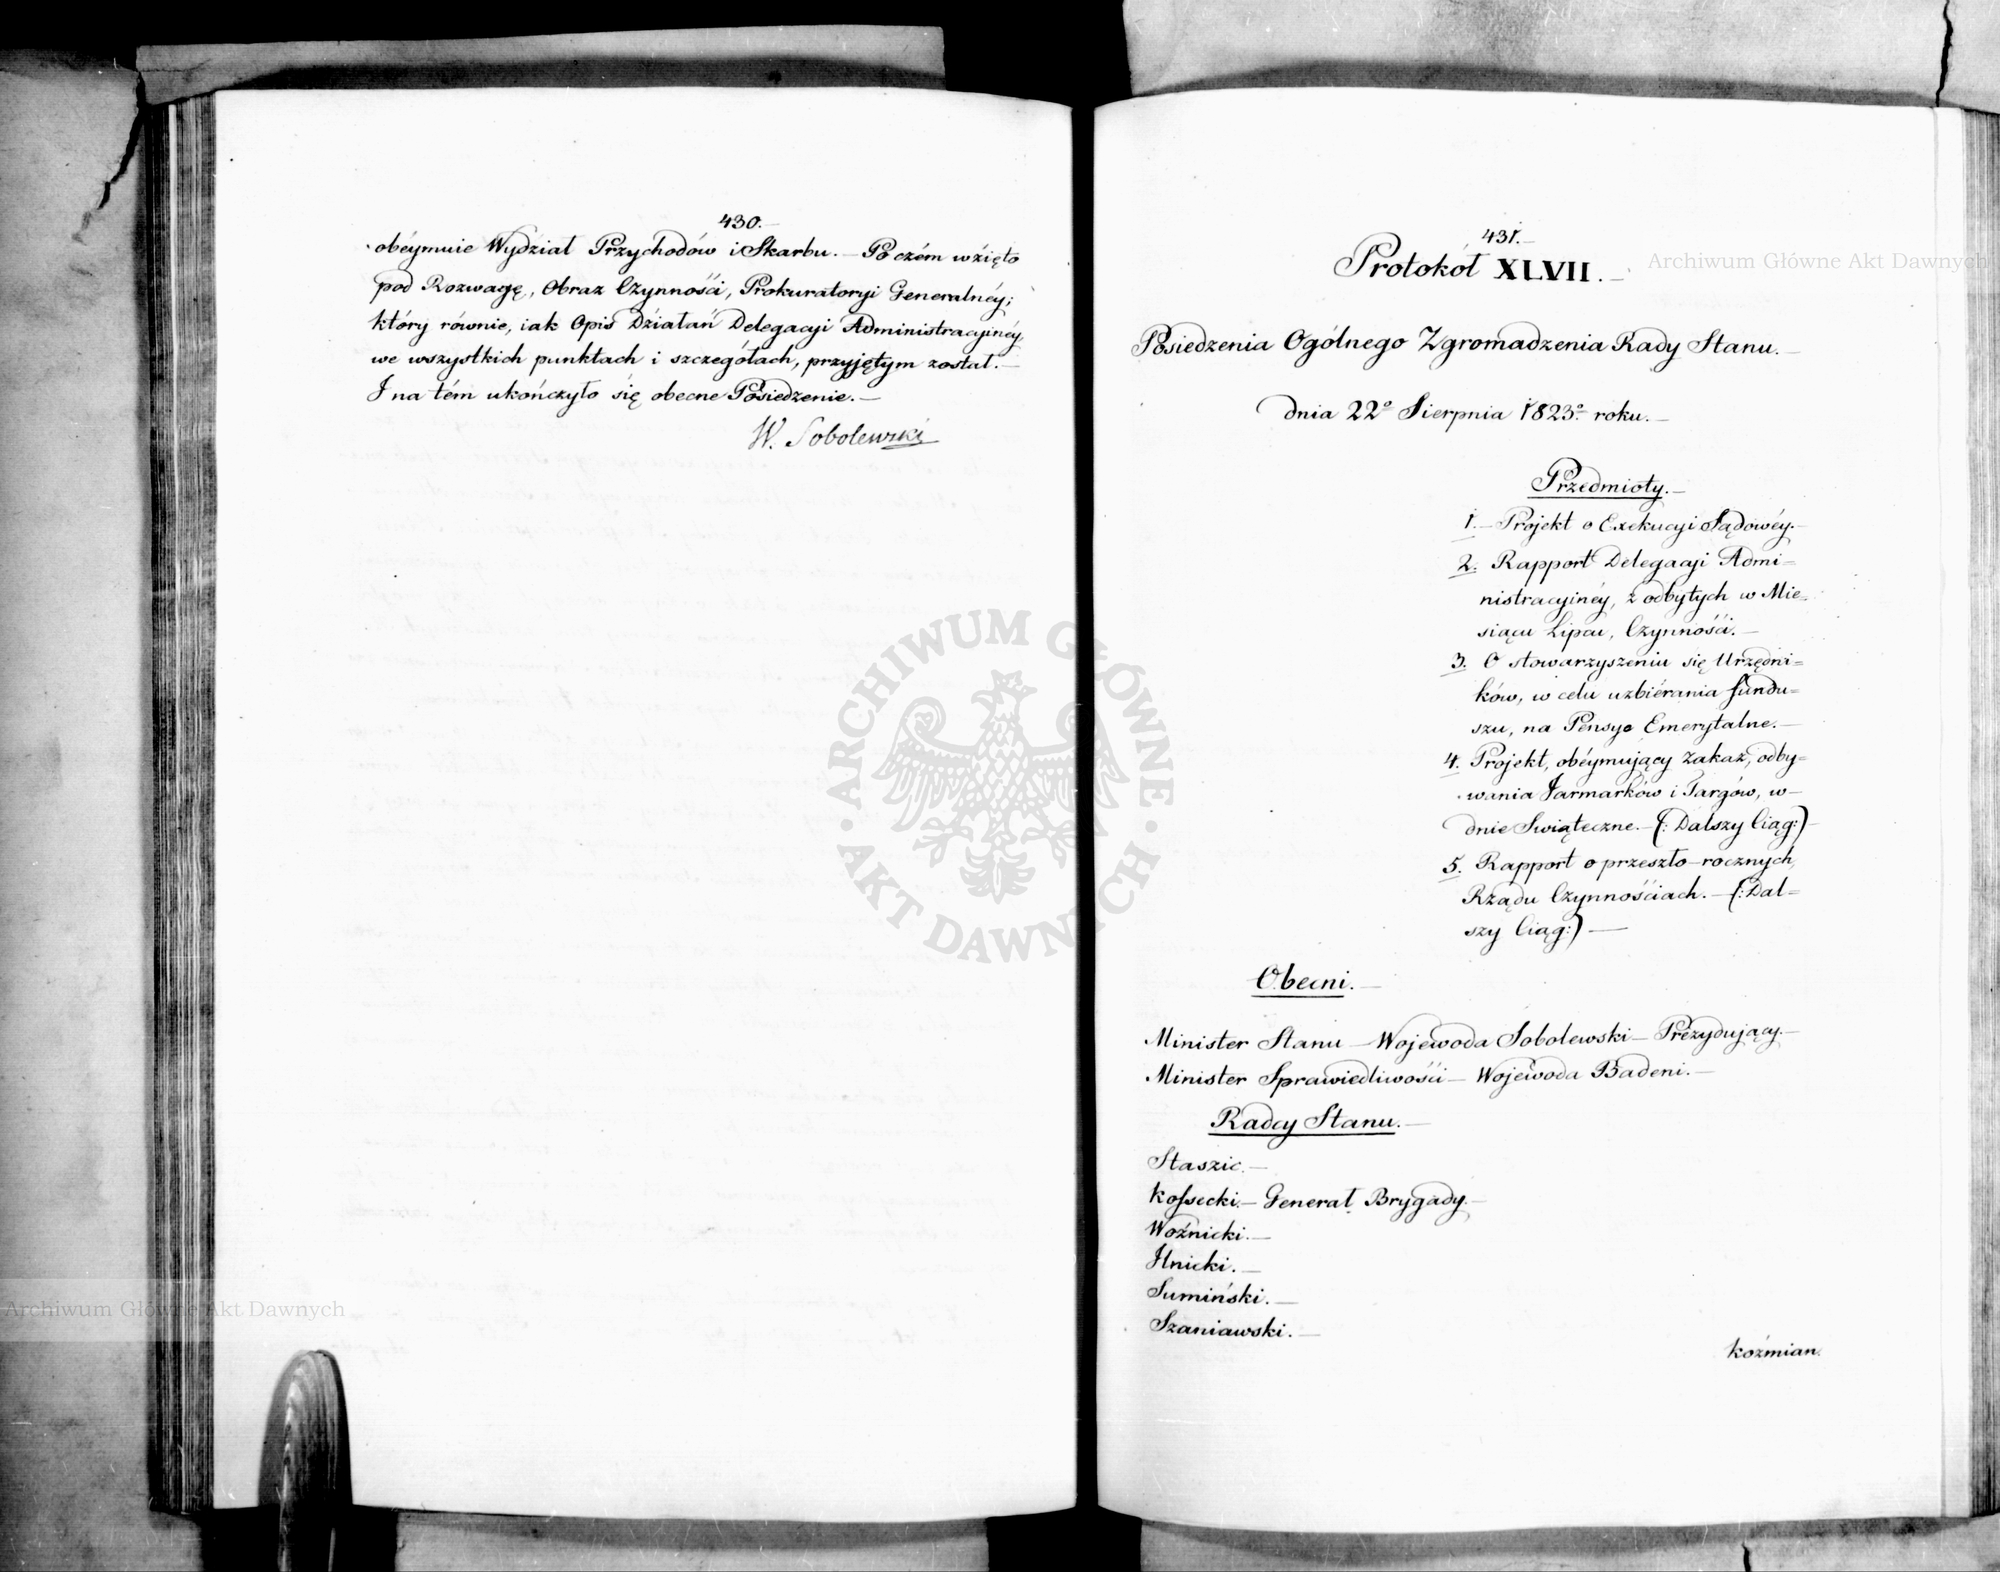 430.
obéymuie Wydział Przychodów i Skarbu. — Poczém wzięto
pod Rozwagę, Obraz Czynności, Prokuratoryi Generalnéy;
który równie, iak Opis Działań Delegacyi Administracyinéy,
we wszystkich punktach i szczegółach, przyjętym został. —
I na tém ukończyło się obecne Posiedzenie. —
W. Sobolewski
431.
Protokół XLVII. —
Posiedzenia Ogólnego Zgromadzenia Rady Stanu. —
dnia 22º Sierpnia 1823º roku. —
Przedmioty. —
1. — Projekt o Exekucyi Sądowéy. —
2. Rapport Delegacyi Admi=
nistracyinéy, z odbytych w Mie=
siącu Lipcu, Czynności. —
3. O stowarzyszeniu się Urzędni=
ków, w celu uzbiérania fundu=
szu, na Pensye Emerytalne. —
4. Projekt, obéymujący Zakaz, odby=
wania Jarmarków i Targów, w —
dnie Swiąteczne. — (: Dalszy Ciąg :)
5. Rapport o przeszło-rocznych,
Rządu Czynnościach. — (: Dal=
szy Ciąg :) —
Obecni. —
Minister Stanu — Wojewoda Sobolewski — Prézydujący. —
Minister Sprawiedliwości — Wojewoda Badeni. —
Radcy Stanu. —
Staszic. —
Kossecki. — Generał Brygady. —
Woźnicki. —
Ilnicki. —
Sumiński. —
Szaniawski. —
Koźmian.
Archiwum Główne Akt Dawnych
Archiwum Główne Akt Dawnych
ARCHIWUM GŁÓWNE
AKT DAWNYCH